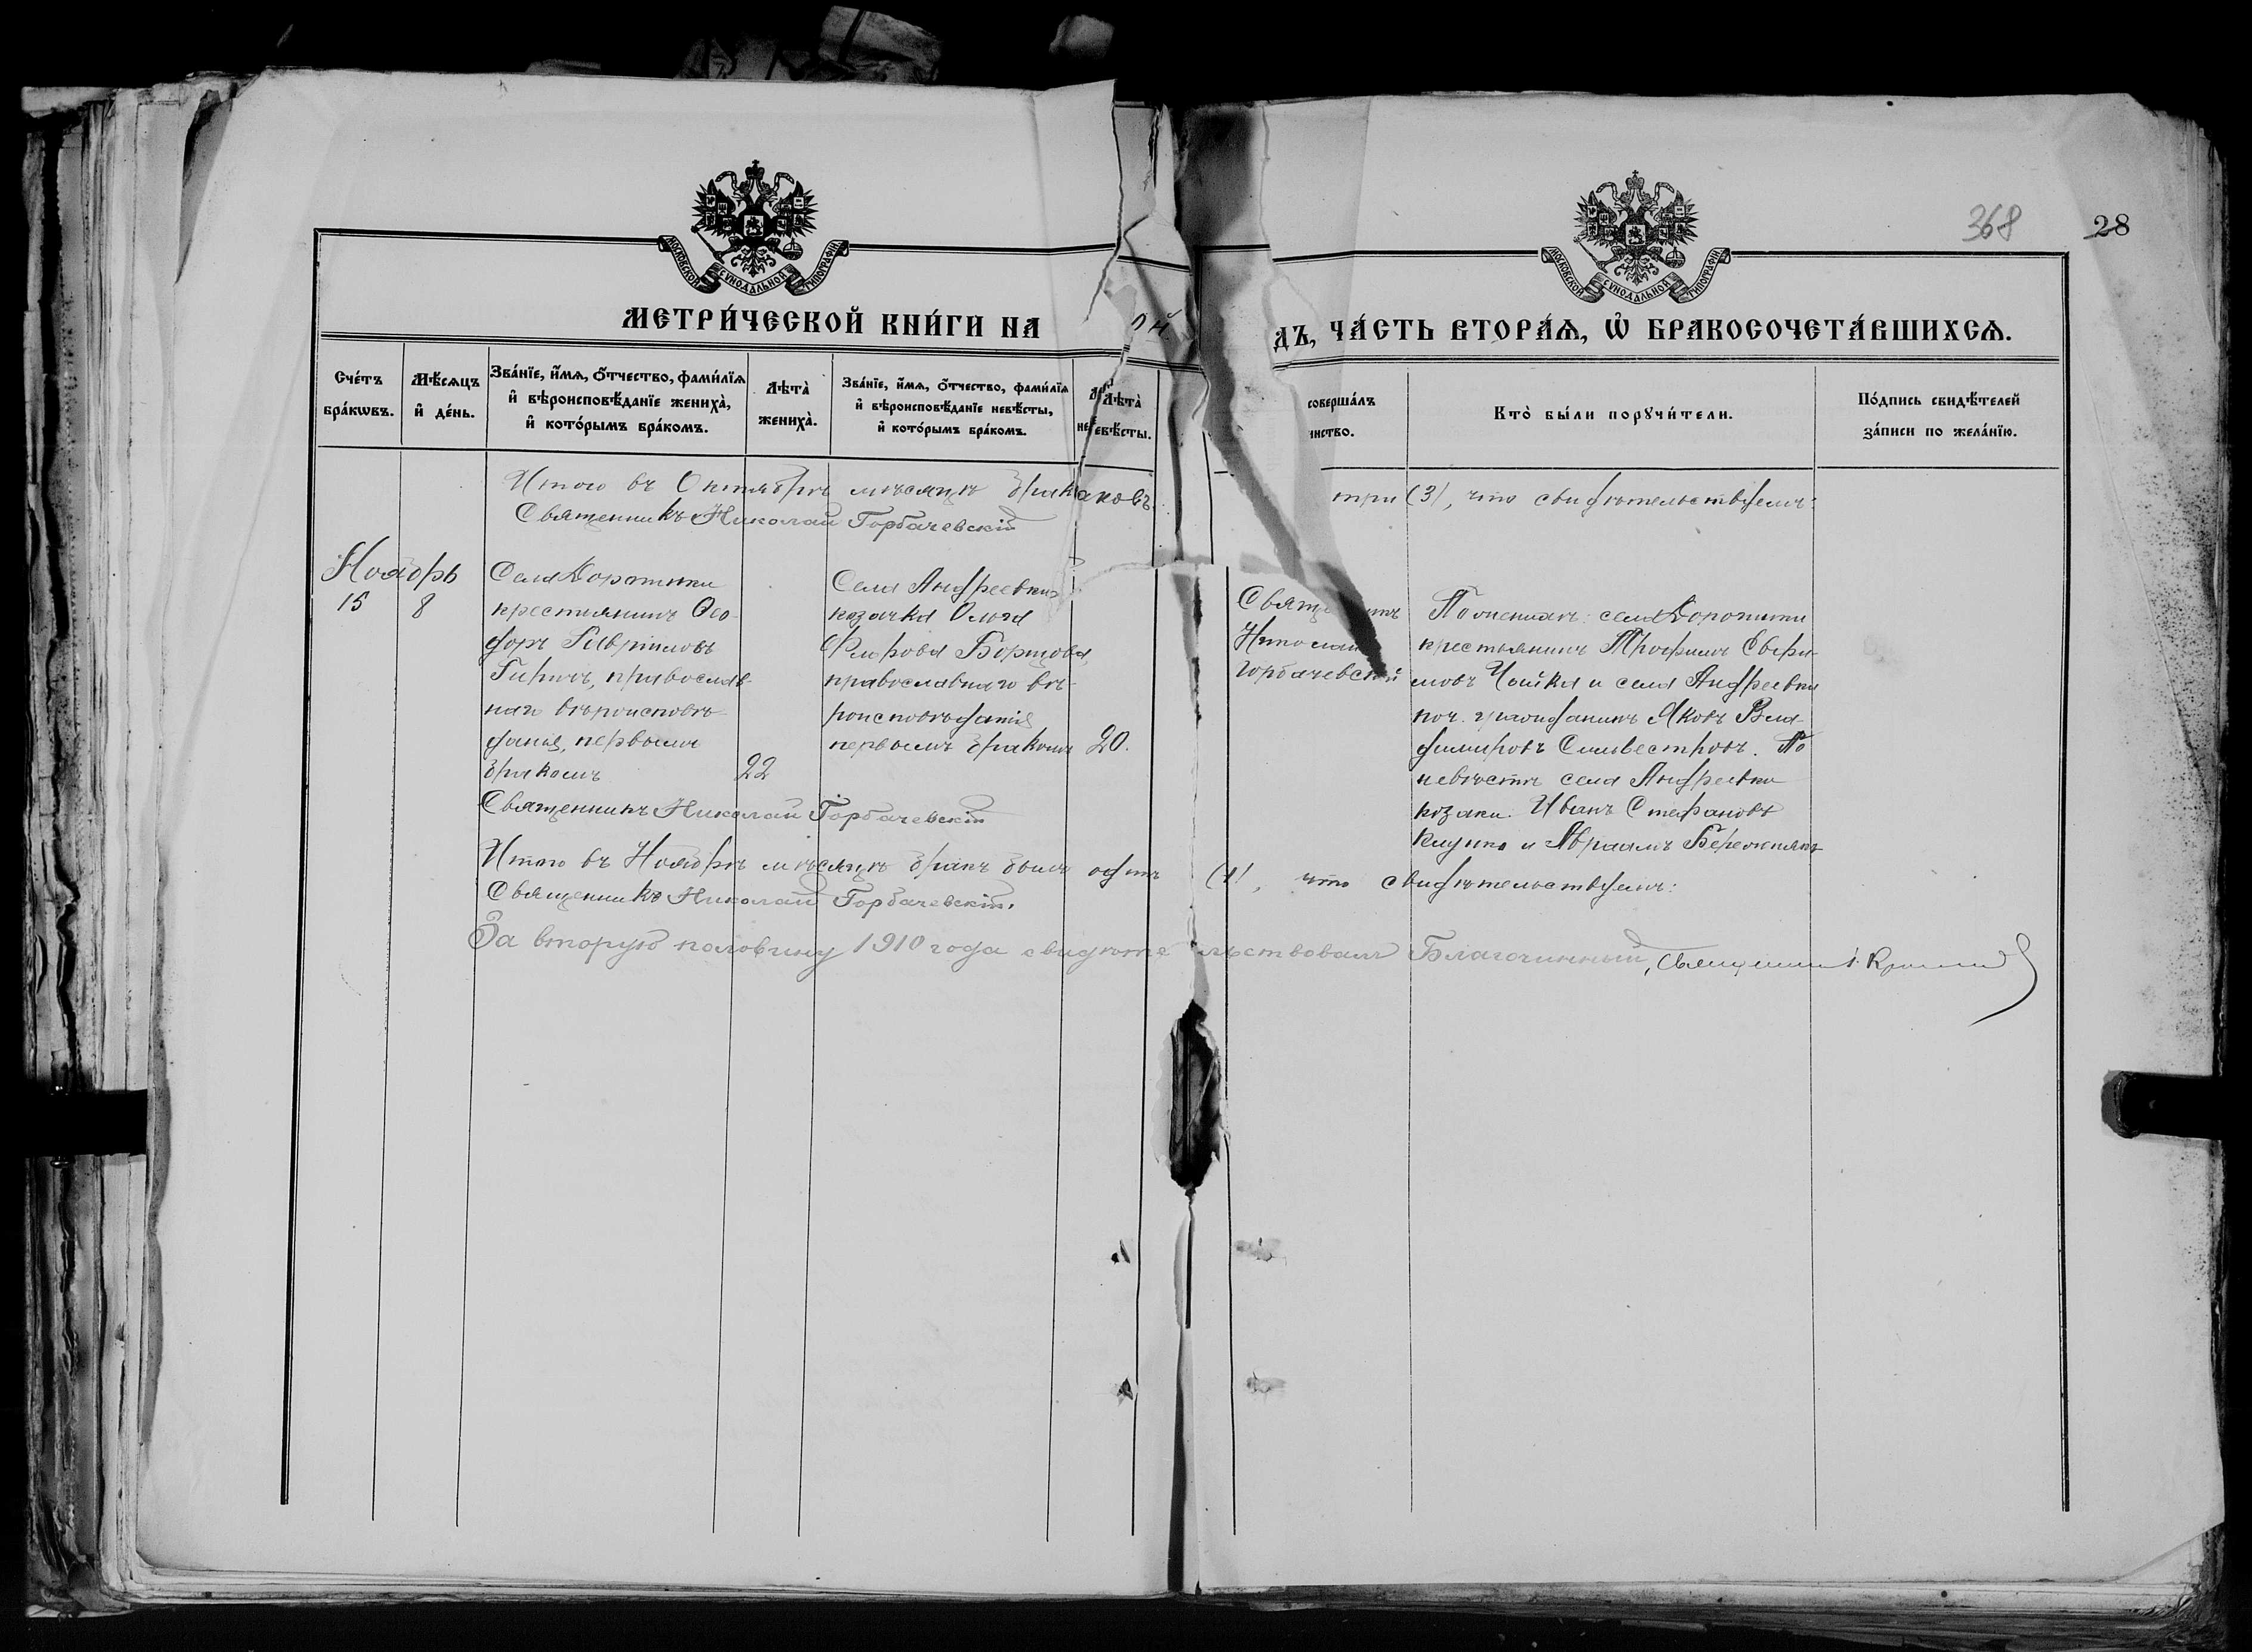 368 28
МОСКОВСКОЙ СѴНОДАЛЬНОЙ ТИПОГРАФІИ
МОСКОВСКОЙ СѴНОДАЛЬНОЙ ТИПОГРАФІИ
МЕТРИ́ЧЕСКОЙ КНИ́ГИ НА
ДЪ, ЧА́СТЬ ВТОРА́Ѧ, Ѡ БРАКОСОЧЕТА́ВШИХСѦ.
Сче́тъ бра́кѡвъ.
Мѣ́сяцъ и҆ де́нь.
Зва́нїе, и҆́мѧ, ѻ҆́тчество, фами́лїѧ и҆ вѣроисповѣ́данїе жениха̀, и҆ кото́рымъ бра́комъ.
Лѣта̀ жениха̀.
Зва́нїе, и҆́мѧ, ѻ҆́тчество, фами́лїѧ и҆ вѣроисповѣ́данїе невѣ́сты, и҆ кото́рымъ бра́комъ.
Лѣта̀ невѣ́сты.
соверша́лъ
инство.
Кто̀ бы́ли порꙋчи́тели.
По́дпись свидѣ́телей за́писи по жела́нїю.
Итого въ Октябрѣ мѣсяцѣ браковъ три (3), что свидѣтельствуемъ:
Священникъ Николай Горбачевскій
Ноябрь
15 8
Села
крестьянинъ Ѳео-
доръ Гавріиловъ
православ-
наго вѣроисповѣ-
данія, первымъ
бракомъ 22
Села Андреевки
козачка Ольга
Борщова,
православнаго вѣ-
роисповѣданія
первымъ бракомъ 20.
Священникъ
Николай
Горбачевскій
По женихѣ: села
крестьянинъ Трофимъ
Чайка и села Андреевки
поч. гражданинъ Яковъ Вла-
димировъ Сильвестровъ. По
невѣстѣ села Андреевки
козаки: Иванъ Стефановъ
и Авраамъ
Священникъ Николай Горбачевскій
Итого въ Ноябрѣ мѣсяцѣ бракъ былъ одинъ (1), что свидѣтельствуемъ:
Священникъ Николай Горбачевскій.
За вторую половину 1910 года свидѣтельствовалъ Благочинный, Священникъ